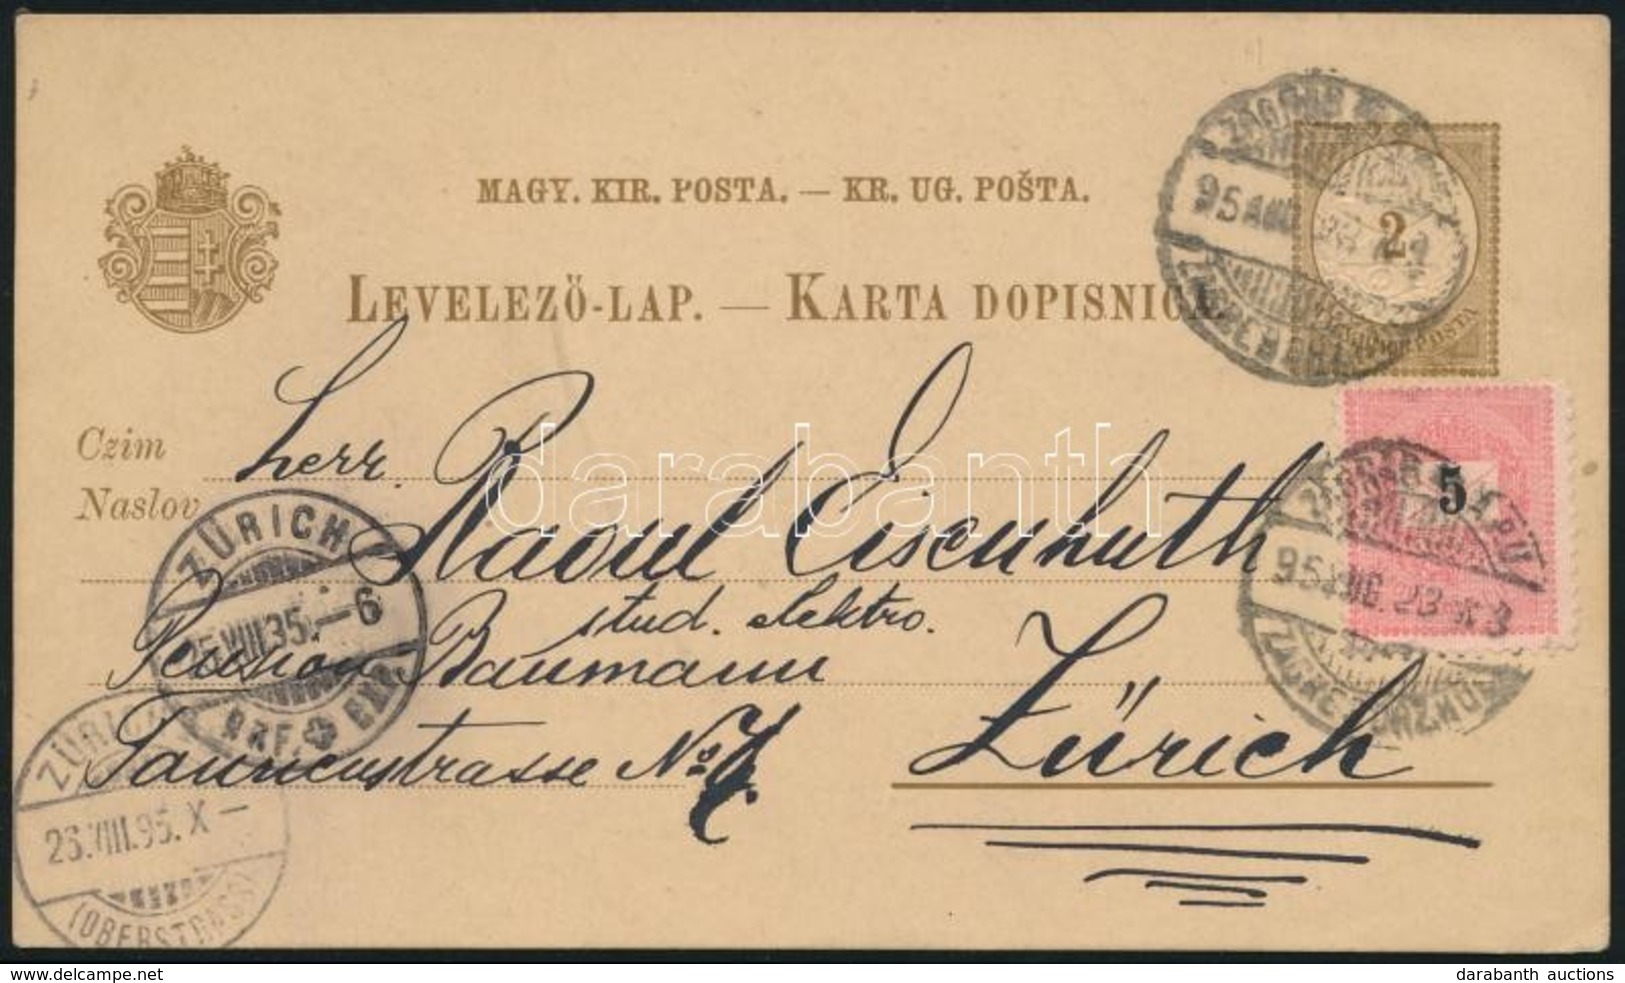 MAGY. KIR. POSTA. — KR. UG. POŠTA.
LEVELEZŐ-LAP. — KARTA DOPISNICA.
2
POSTA
5
Czim
Naslov
Herr Raoul Eisenhuth
stud. elektro.
Pension Baumann
Tannenstrasse No 7.
Zürich
ZÜRICH
VIII.95.–6
BRF. EXP.
ZÜRICH
26.VIII.95.X–
(OBERSTRASS)
ZÁGRÁB
95 AUG.
ZAGREB
ZÁGRÁB
95 AUG. 23
ZAGREB
darabanth
www.delcampe.net
darabanth auctions